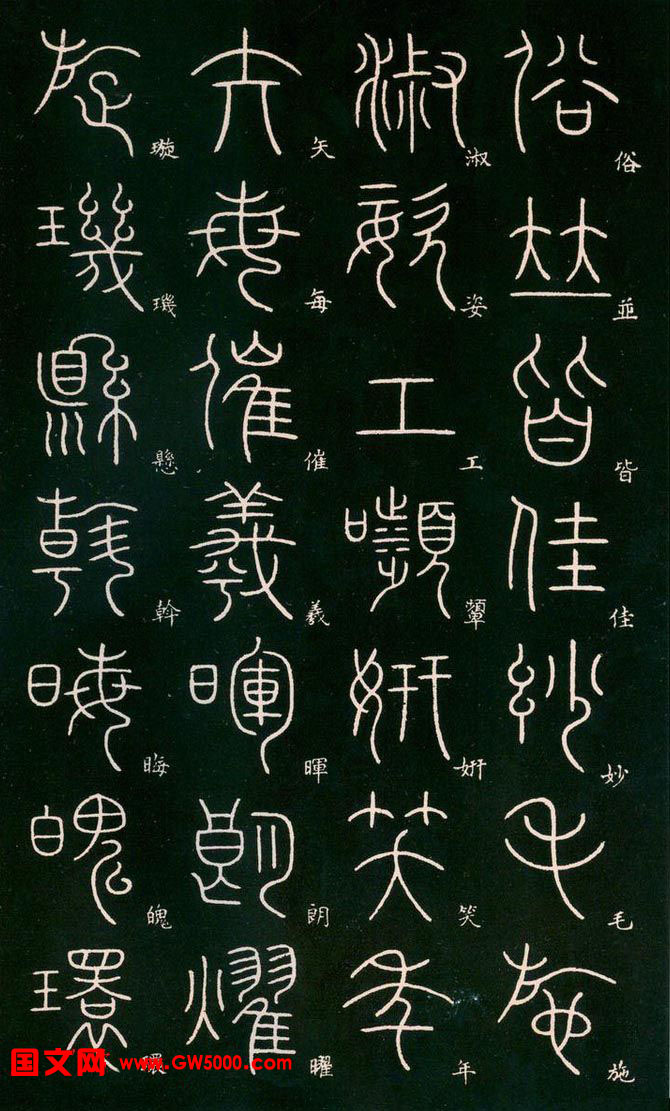 俗並皆佳妙毛施
淑姿工顰姸笑年
矢每催羲暉朗曜
璇璣懸斡晦魄環
国文网 www.GW5000.com